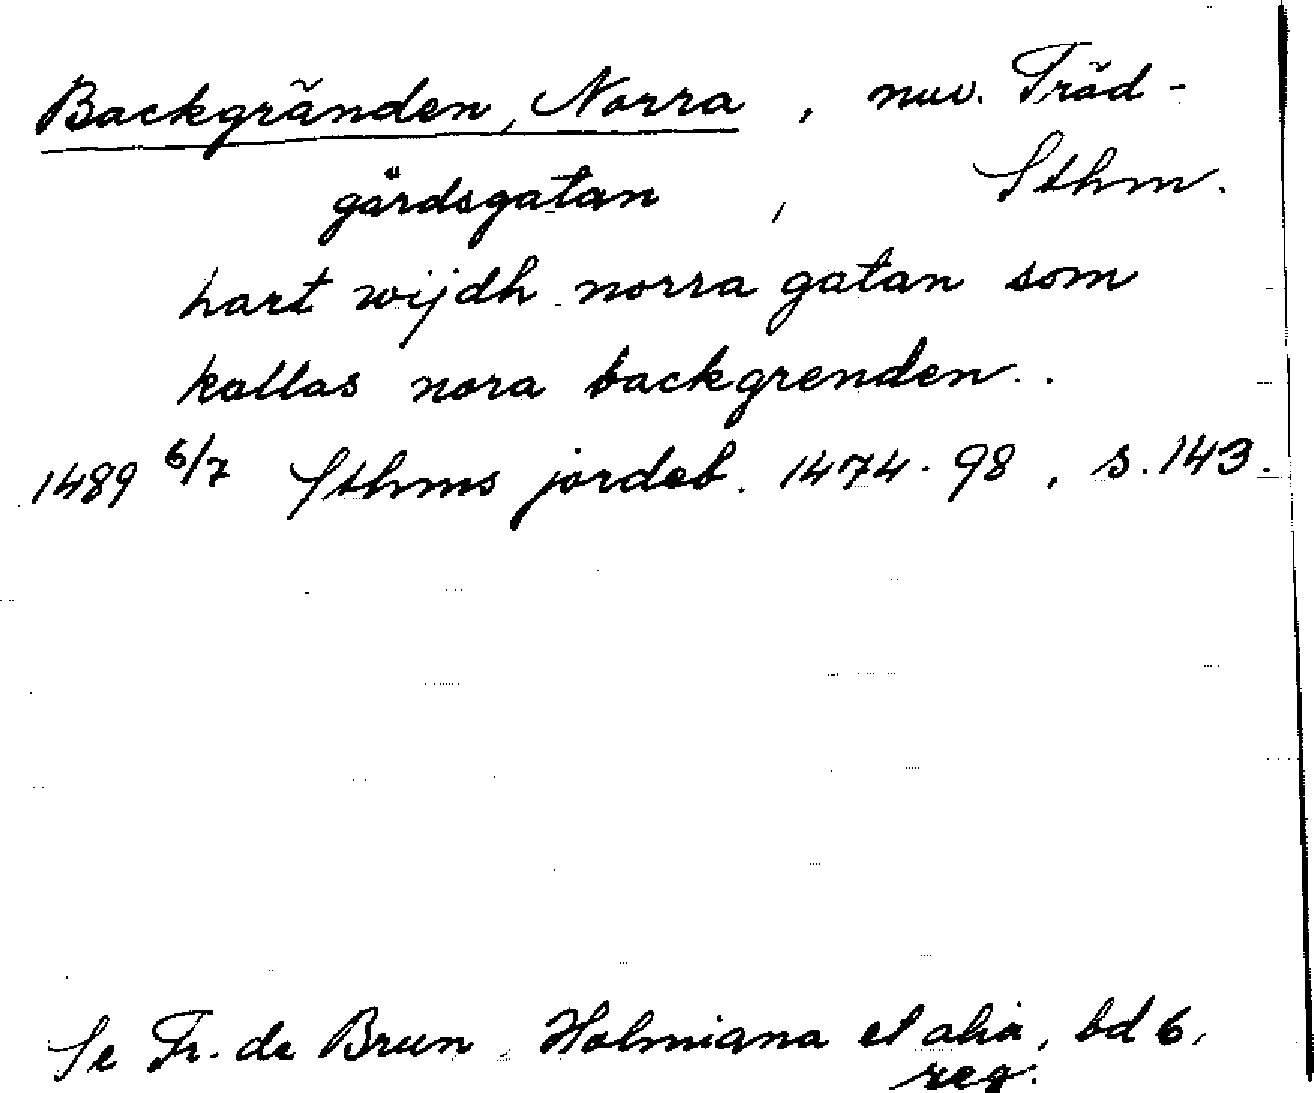 Backgränden, Norra, nuv. Träd-
gårdsgatan, Sthm.
hart wijdh norra gatan som
kallas nora backgrenden..
1489 6/7 Sthms jordeb. 1474-98, s. 143.
Se Fr. de Brun, Holmiana et alia, bd 6,
reg.